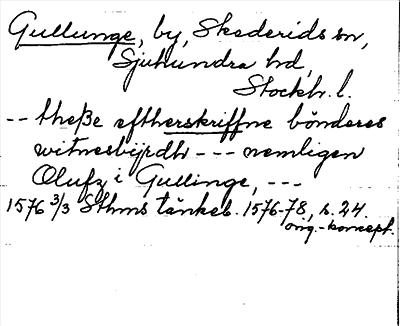 Gullunge, by, Skederids sn,
Sjuhundra hd,
Stockh. l.
-- theße eftherskriffne bönderes
witnesbijrdh --- nemligen
Olufz i Gullinge, ---
1576 3/3 Sthms tänkeb. 1576-78, s. 24.
orig.-koncept.